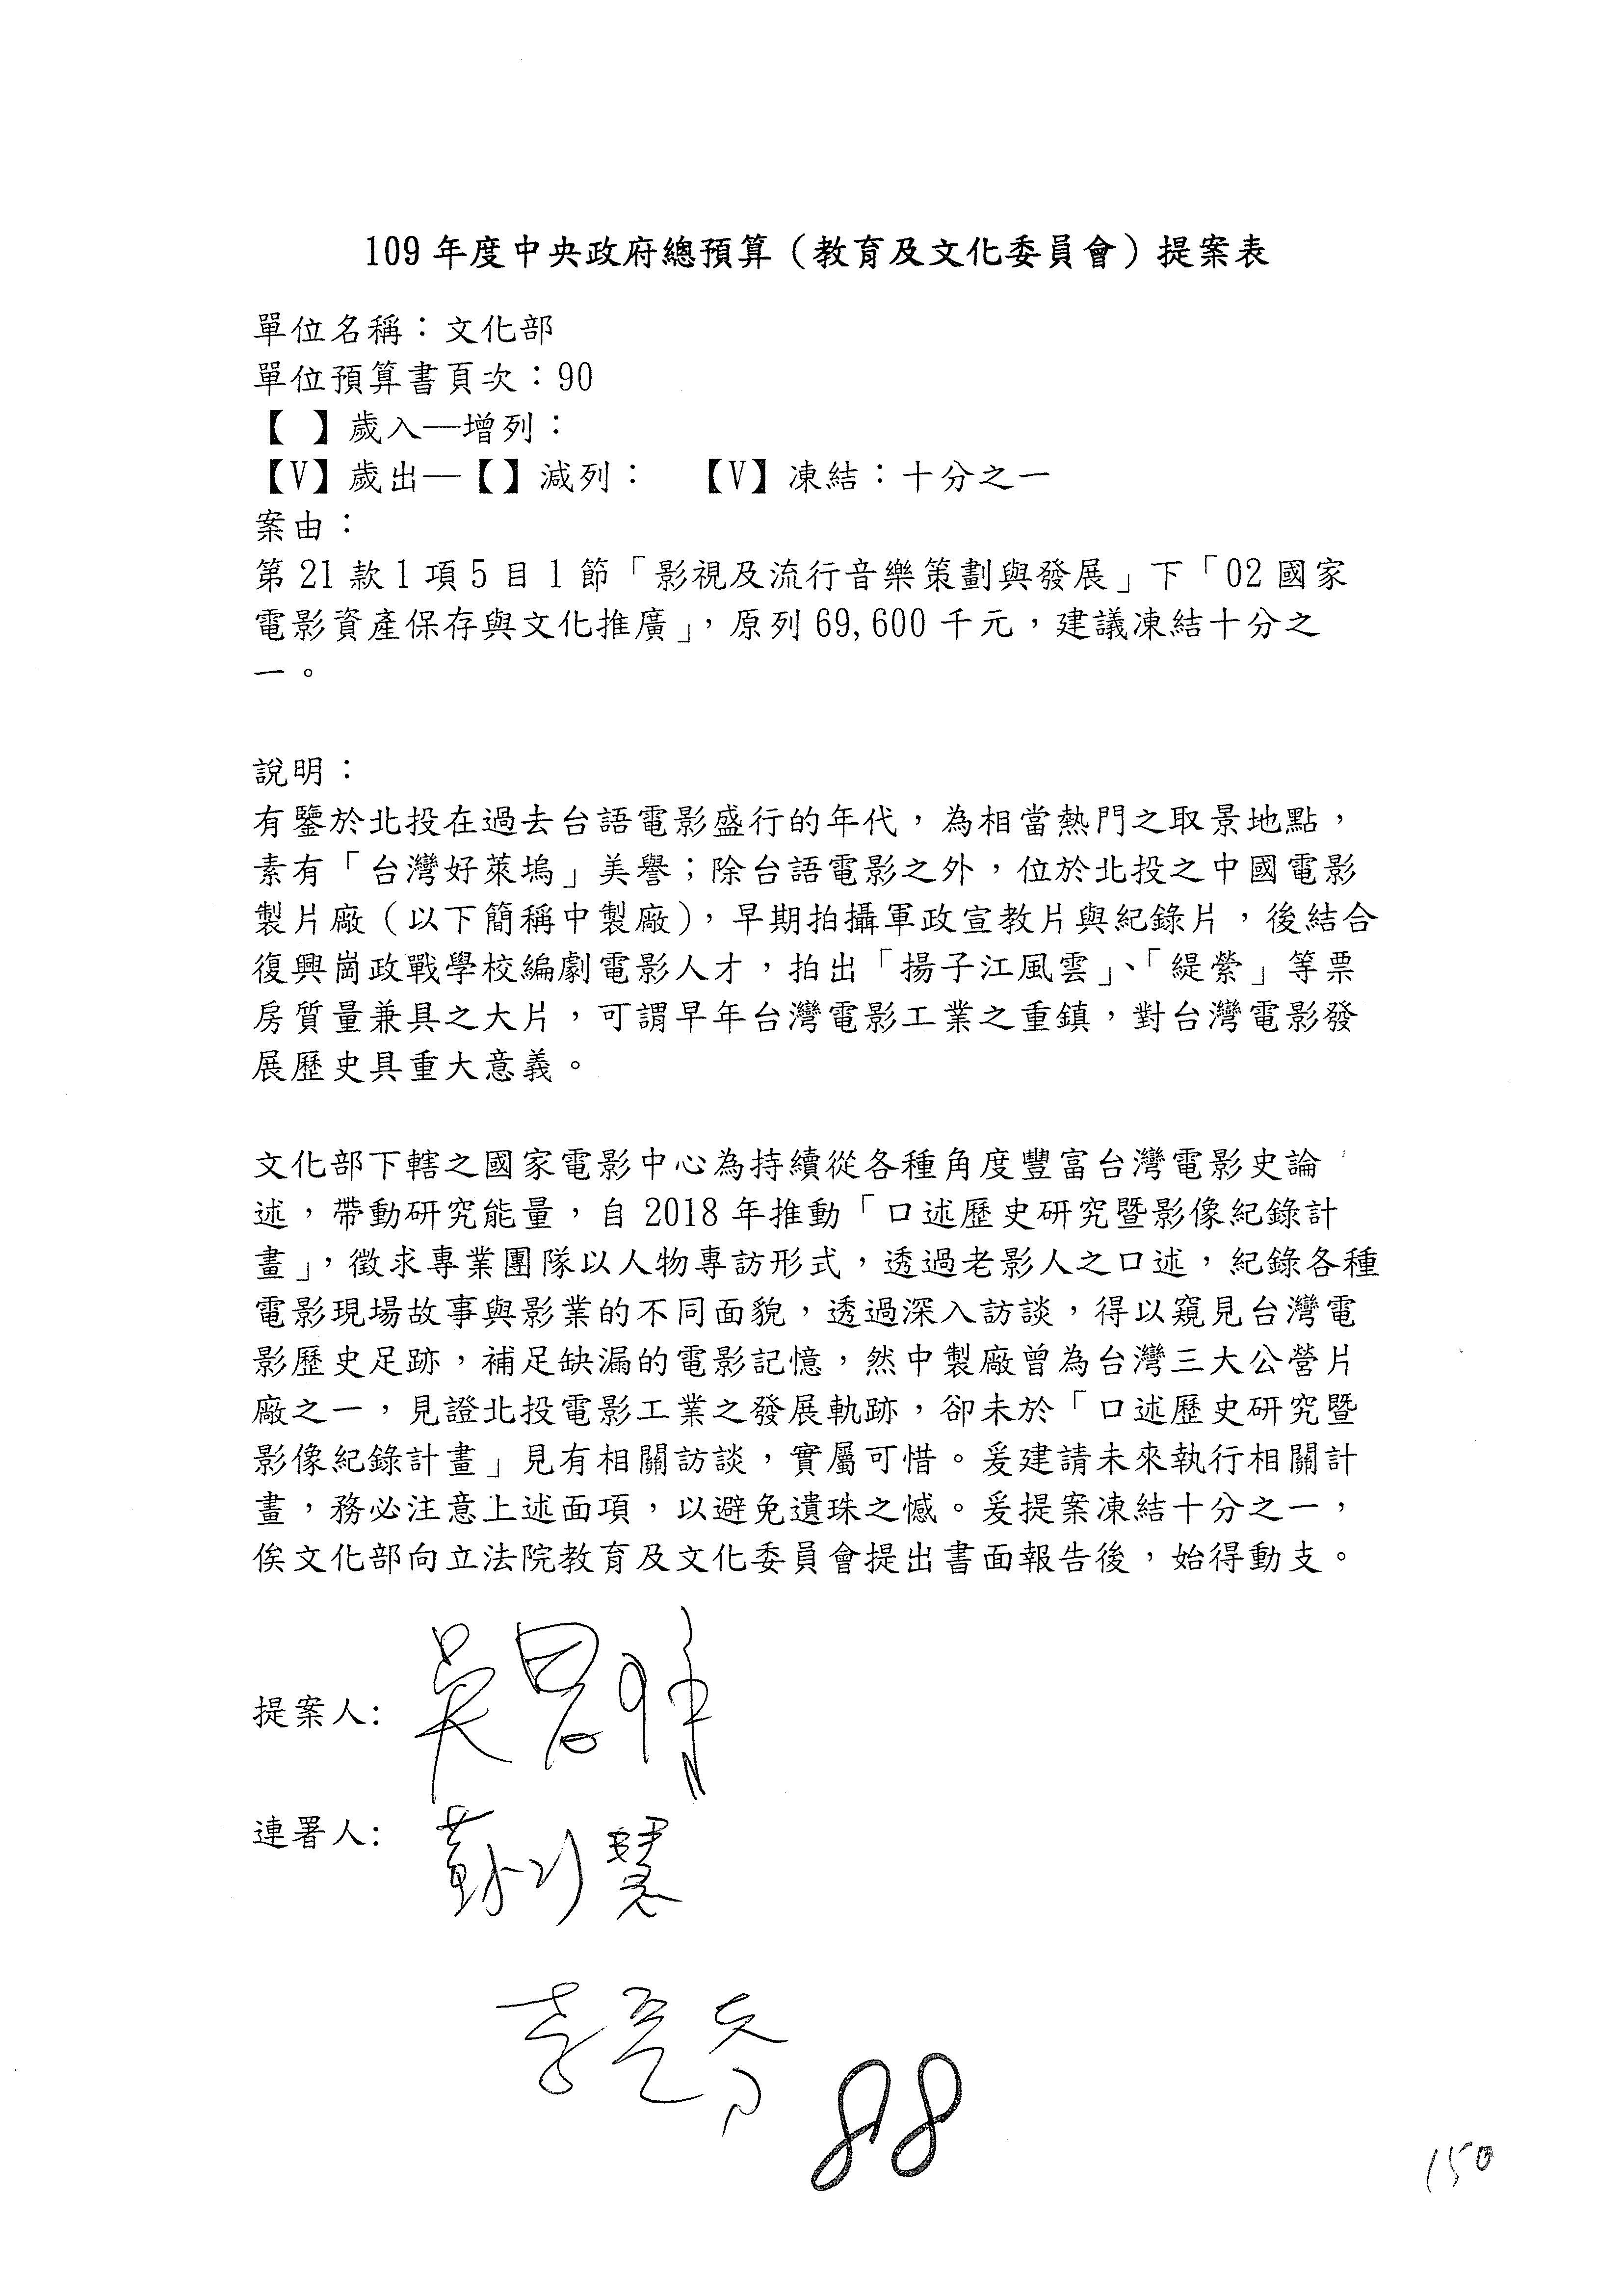 109年度中央政府總預算（教育及文化委員會）提案表
單位名稱：文化部
單位預算書頁次：90
【 】歲入—增列：
【V】歲出—【】減列： 【V】凍結：十分之一
案由：
第21款1項5目1節「影視及流行音樂策劃與發展」下「02國家
電影資產保存與文化推廣」，原列69,600千元，建議凍結十分之
一。
說明：
有鑒於北投在過去台語電影盛行的年代，為相當熱門之取景地點，
素有「台灣好萊塢」美譽；除台語電影之外，位於北投之中國電影
製片廠（以下簡稱中製廠），早期拍攝軍政宣教片與紀錄片，後結合
復興崗政戰學校編劇電影人才，拍出「揚子江風雲」、「緹縈」等票
房質量兼具之大片，可謂早年台灣電影工業之重鎮，對台灣電影發
展歷史具重大意義。
文化部下轄之國家電影中心為持續從各種角度豐富台灣電影史論
述，帶動研究能量，自2018年推動「口述歷史研究暨影像紀錄計
畫」，徵求專業團隊以人物專訪形式，透過老影人之口述，紀錄各種
電影現場故事與影業的不同面貌，透過深入訪談，得以窺見台灣電
影歷史足跡，補足缺漏的電影記憶，然中製廠曾為台灣三大公營片
廠之一，見證北投電影工業之發展軌跡，卻未於「口述歷史研究暨
影像紀錄計畫」見有相關訪談，實屬可惜。爰建請未來執行相關計
畫，務必注意上述面項，以避免遺珠之憾。爰提案凍結十分之一，
俟文化部向立法院教育及文化委員會提出書面報告後，始得動支。
提案人:
連署人:
88
150